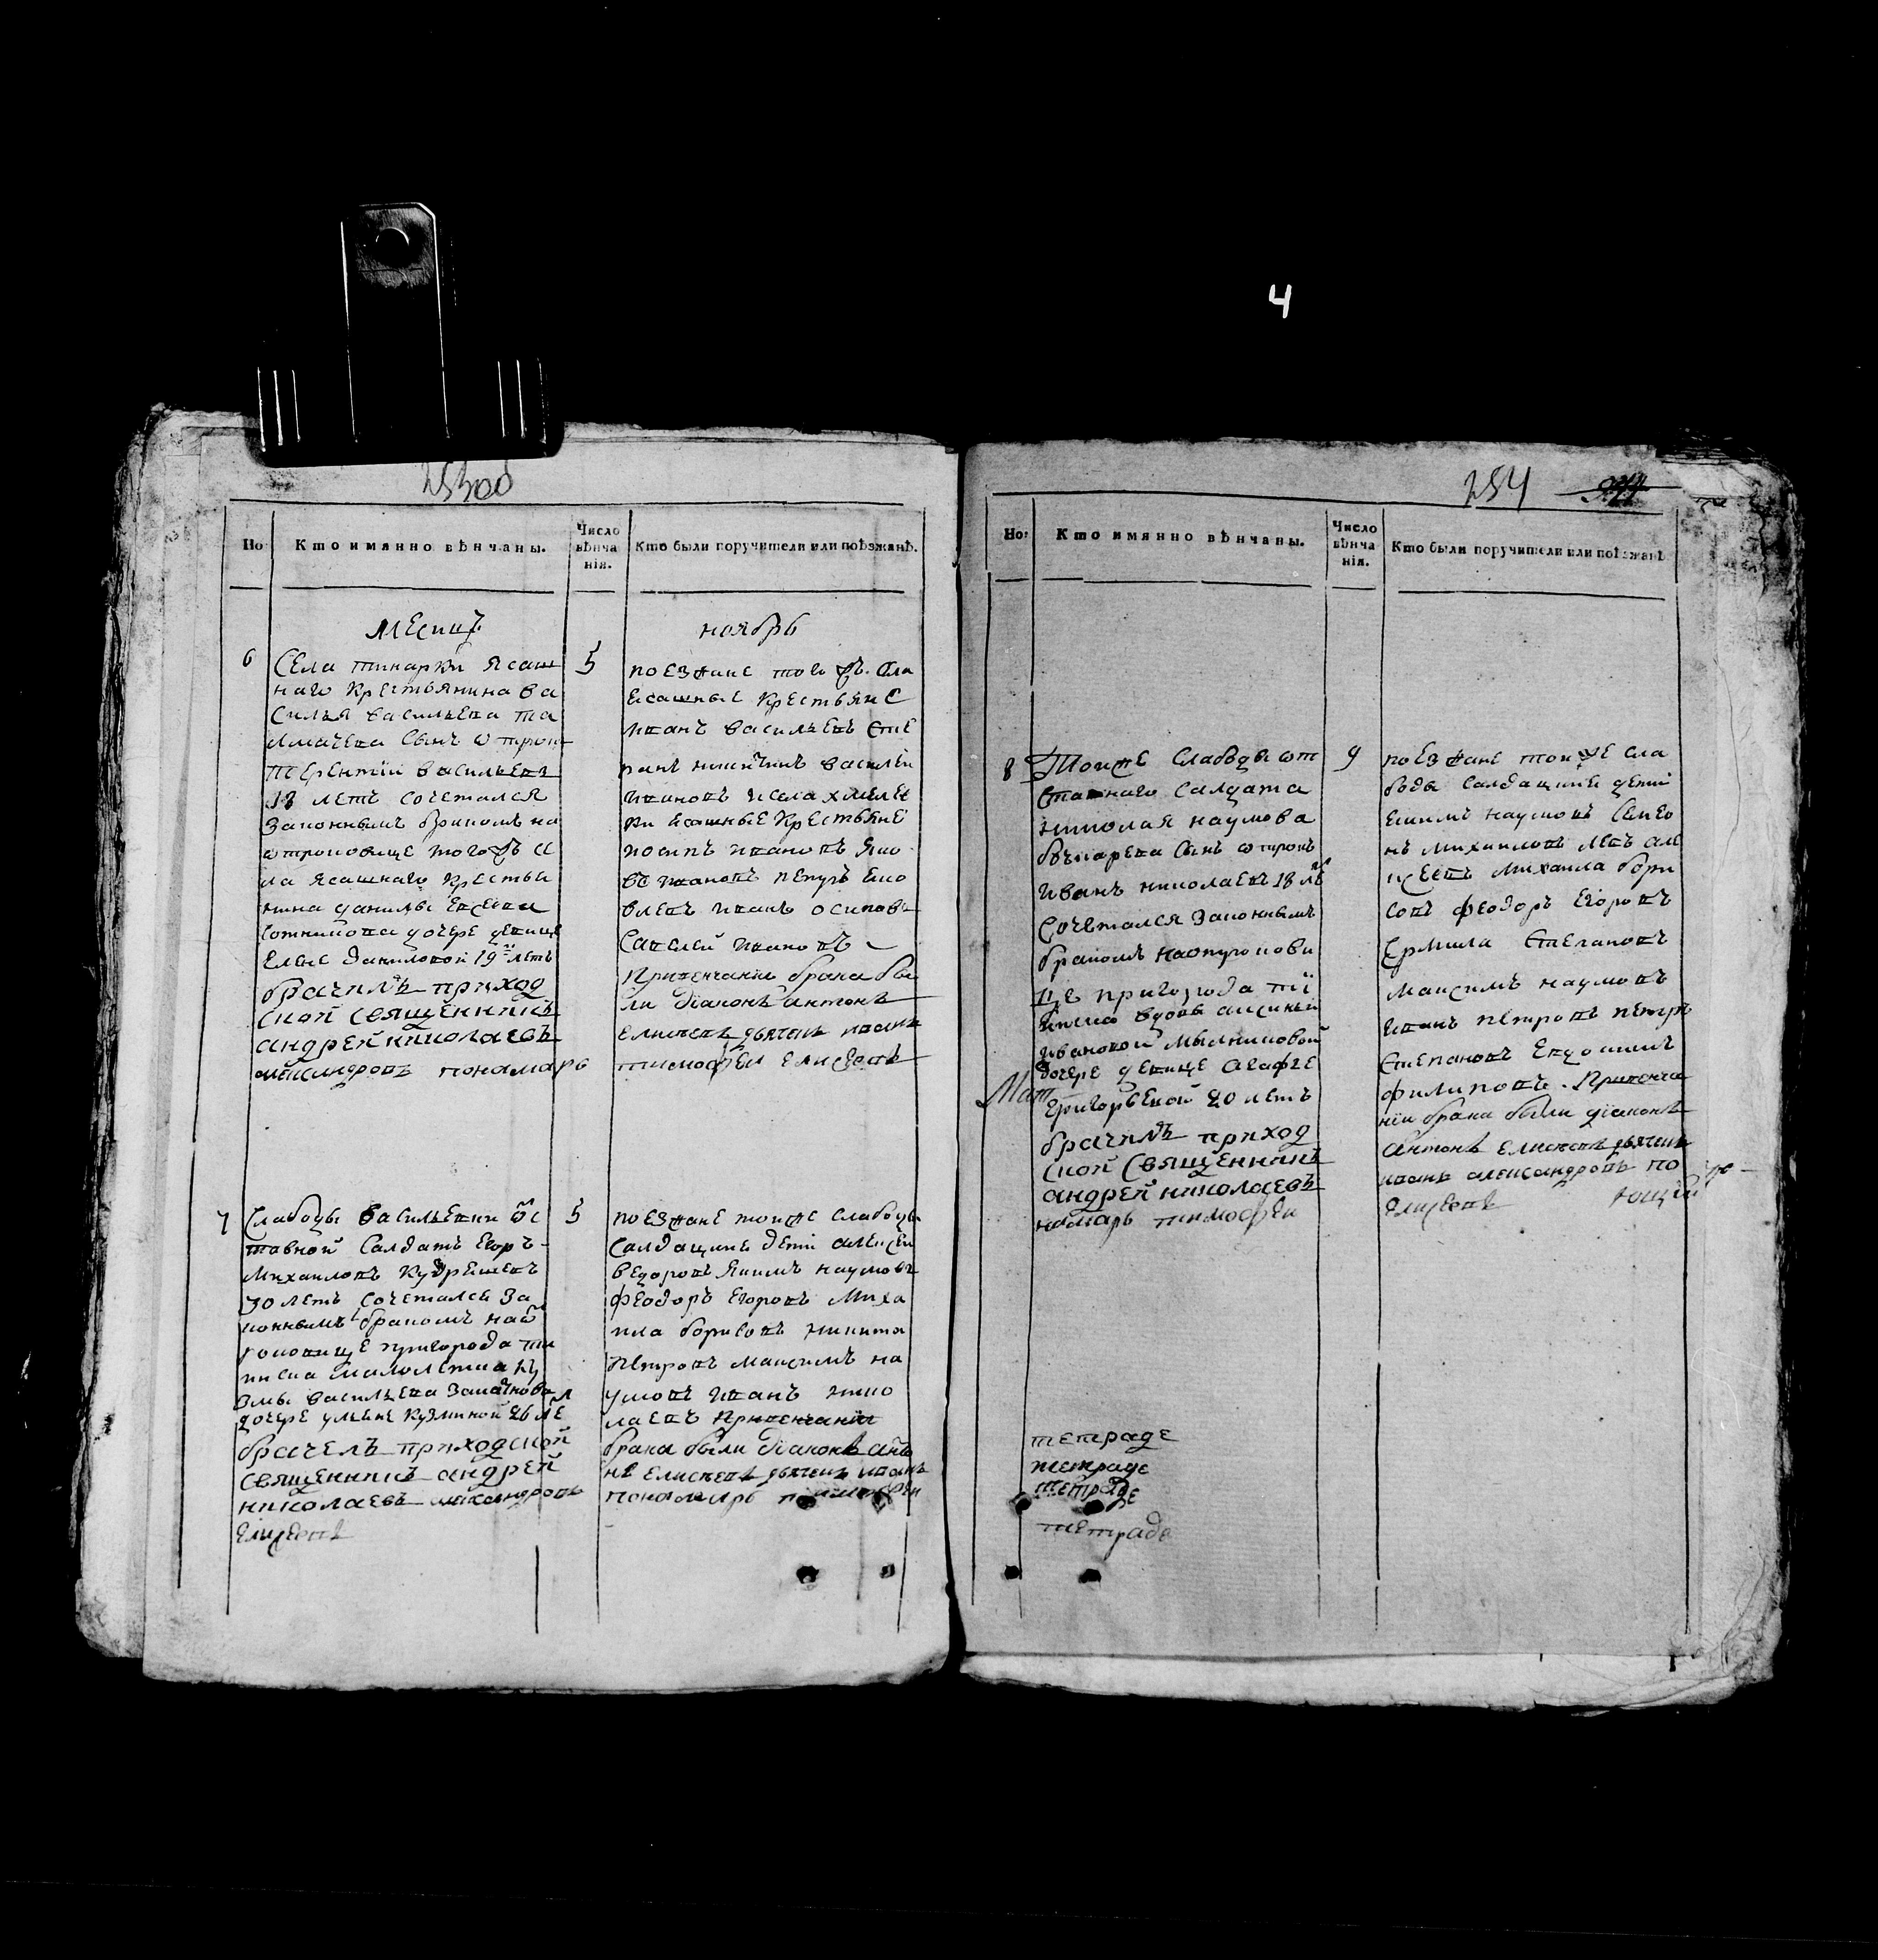 4
253об
Но
Кто имянно вѣнчаны.
Число вѣнча нія.
Кто были поручители или поѣзжанѣ.
месицъ
ноябрь
6
Села тинарки ясаш
наго крестьянина ва
силья васильева та
лмачева сынъ отрок
терентіи васильевъ
18 летъ сочетался
законнымъ бракомъ на
отроковице того жъ се
ла ясашнаго крестья
нина данилы евсева
сотникова дочере девице
елене даниловой 19 летъ
брачилъ приход
ской священникъ
андрей николаевъ
александровъ понамарь
5
поезжане того жъ села
ясашные крестьяне
иванъ васильевъ сте
панъ никитинъ василеи
ивановъ и села хмелев
ки ясашные крестьяне
иосипъ ивановъ яко
въ ивановъ петръ яко
влевъ иванъ осиповъ
савелей ивановъ
При венчаніи брака бы
ли діаконъ антонъ
елисеевъ дьячекъ иванъ
тимофеи елисеевъ
7
Слабоды васильевки от с
тавной салдатъ егоръ
михаиловъ кудряшевъ
30 летъ сочетался за
коннымъ бракомъ на от
роковице пригорода ти
инска малолетка ку
змы васильева
дочере ульяне кузминой 26 ле
брачелъ приходской
священникъ андрей
николаевъ александровъ
елисеевъ
5
поезжане тоиже слабоды
салдацкие дети алексеи
ведоровъ якимъ наумовъ
феодоръ егоровъ миха
ила борисовъ никита
петровъ максимъ на
умовъ иванъ нико
лаевъ При венчаніи
брака были діаконъ анто
нъ елисеевъ дьячекъ иванъ
понамарь тимофеи
254
Но:
Кто имянно вѣнчаны.
Число вѣнча нія.
Кто были поручители или поѣзжанѣ
8
Тоиже слабоды от
ставнаго салдата
николая наумова
сынъ отрокъ
иванъ николаевъ 18 ле
сочетался законнымъ
бракомъ на отрокови
це пригорода тіи
инска вдовы аксиньи
ивановой мыльниковой
дочере девице агафье
григорьевой 20 летъ
брачилъ приход
ской священникъ
андрей николаевъ
намарь тимофеи
Мат
9
поезжане тоиже сла
боды салдацкие дети
якимъ наумовъ семео
нъ михаиловъ левъ але
ксеевъ михаила бори
совъ феодоръ егоровъ
ермила степановъ
максимъ наумовъ
иванъ петровъ петръ
степановъ евдокимъ
филиповъ. При венча
ніи брака были діаконъ
антонъ елисеевъ дьячекъ
иванъ александровъ по
елисеевъ
ющій
тетраде
тетраде
тетраде
тетраде